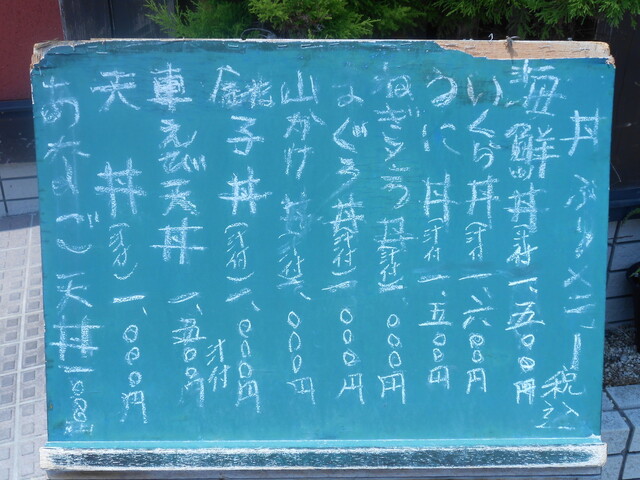 丼ぶりメニュー 税込
海鮮丼(汁付)一、五〇〇円
いくら丼(汁付)一、六〇〇円
うに丼(汁付)一、五〇〇円
ねぎとろ丼(汁付)一、〇〇〇円
まぐろ丼(汁付)一、〇〇〇円
山かけ丼(汁付)一、〇〇〇円
子丼(汁付)一、〇〇〇円
車えび天丼 一、五〇〇円 汁付
天丼(汁付)一、〇〇〇円
あなご天丼